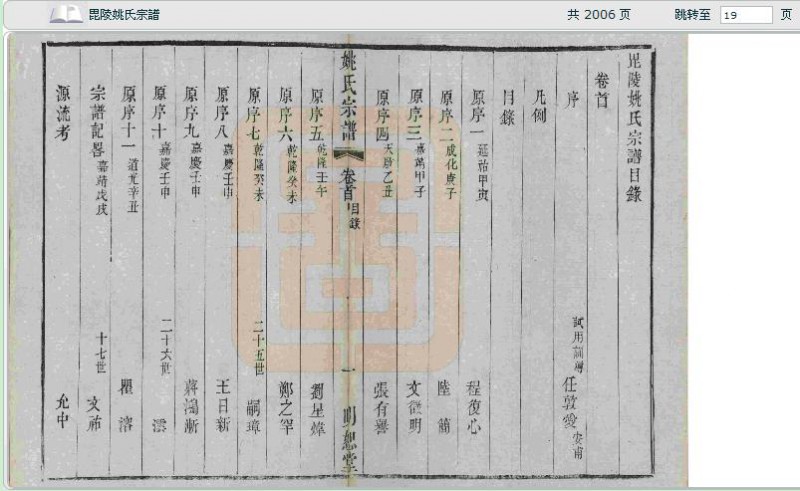 毘陵姚氏宗譜
共 2006 页
跳转至 19 页
毘陵姚氏宗譜目錄
卷首
序 試用訓導 任敦愛 安甫
凡例
目錄
原序一 延祐甲寅 程復心
原序二 成化庚子 陸簡
原序三 嘉萬甲子 文徵明
原序四 天啟乙丑 張有譽
姚氏宗譜 卷首 目錄 一 明恕堂
原序五 乾隆壬午 劉星煒
原序六 乾隆癸未 鄭之罕
原序七 乾隆癸未 二十五世 嗣璋
原序八 嘉慶壬申 王日新
原序九 嘉慶壬申 蔣鴻漸
原序十 嘉慶壬申 二十六世 澐
原序十一 道光辛丑 瞿溶
宗譜記畧 嘉靖戊戌 十七世 文祈
源流考 允中